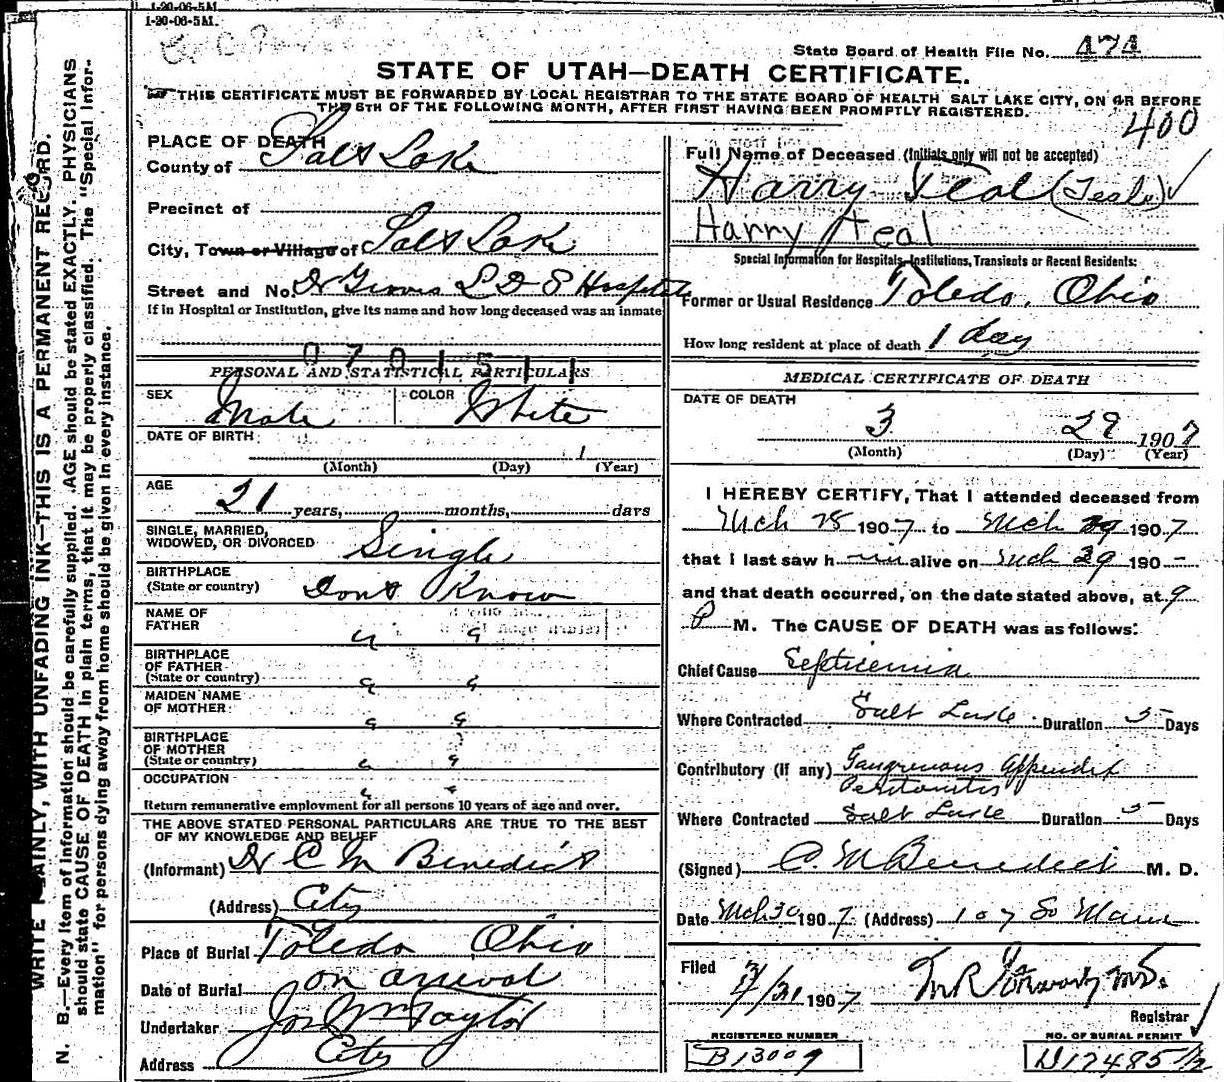 1-20-06-5M.
1-20-06-5M.
State Board of Health File No. 474
STATE OF UTAH—DEATH CERTIFICATE.
THIS CERTIFICATE MUST BE FORWARDED BY LOCAL REGISTRAR TO THE STATE BOARD OF HEALTH SALT LAKE CITY, ON OR BEFORE
THE 5TH OF THE FOLLOWING MONTH, AFTER FIRST HAVING BEEN PROMPTLY REGISTERED.
400
WRITE PLAINLY, WITH UNFADING INK—THIS IS A PERMANENT RECORD.
N. B.—Every item of information should be carefully supplied. AGE should be stated EXACTLY. PHYSICIANS
should state CAUSE OF DEATH in plain terms, that it may be properly classified. The "Special Infor-
mation" for persons dying away from home should be given in every instance.
PLACE OF DEATH
County of Salt Lake
Precinct of
City, Town or Village of Salt Lake
Street and No. Dr Groves L D S Hospital
If in Hospital or Institution, give its name and how long deceased was an inmate
0701511
PERSONAL AND STATISTICAL PARTICULARS
SEX Male COLOR White
DATE OF BIRTH 1
(Month) (Day) (Year)
AGE
21 years, months, days
SINGLE, MARRIED,
WIDOWED, OR DIVORCED Single
BIRTHPLACE
(State or country) Dont Know
NAME OF
FATHER " "
BIRTHPLACE
OF FATHER
(State or country) " "
MAIDEN NAME
OF MOTHER " "
BIRTHPLACE
OF MOTHER
(State or country) " "
OCCUPATION " "
Return remunerative employment for all persons 10 years of age and over.
THE ABOVE STATED PERSONAL PARTICULARS ARE TRUE TO THE BEST
OF MY KNOWLEDGE AND BELIEF
(Informant) Dr C M Benedict
(Address) City
Place of Burial Toledo, Ohio
Date of Burial on arrival
Undertaker Jos Wm Taylor
Address City
Full Name of Deceased (Initials only will not be accepted)
Harry Teal (Teale)
Harry Teal
Special Information for Hospitals, Institutions, Transients or Recent Residents:
Former or Usual Residence Toledo, Ohio
How long resident at place of death 1 day
MEDICAL CERTIFICATE OF DEATH
DATE OF DEATH
3 29 1907
(Month) (Day) (Year)
I HEREBY CERTIFY, That I attended deceased from
Mch 28 1907 to Mch 29 1907
that I last saw h im alive on Mch 29 190-
and that death occurred, on the date stated above, at 9
P M. The CAUSE OF DEATH was as follows:
Chief Cause Septicemia
Where Contracted Salt Lake Duration 5 Days
Contributory (if any) Gangrenous Appendix
Peritonitis
Where Contracted Salt Lake Duration 5 Days
(Signed) C. M Benedict M. D.
Date Mch 30 1907 (Address) 107 So Main
Filed 3/31 1907
Registrar
REGISTERED NUMBER
B13009
NO. OF BURIAL PERMIT
D17485 1/2